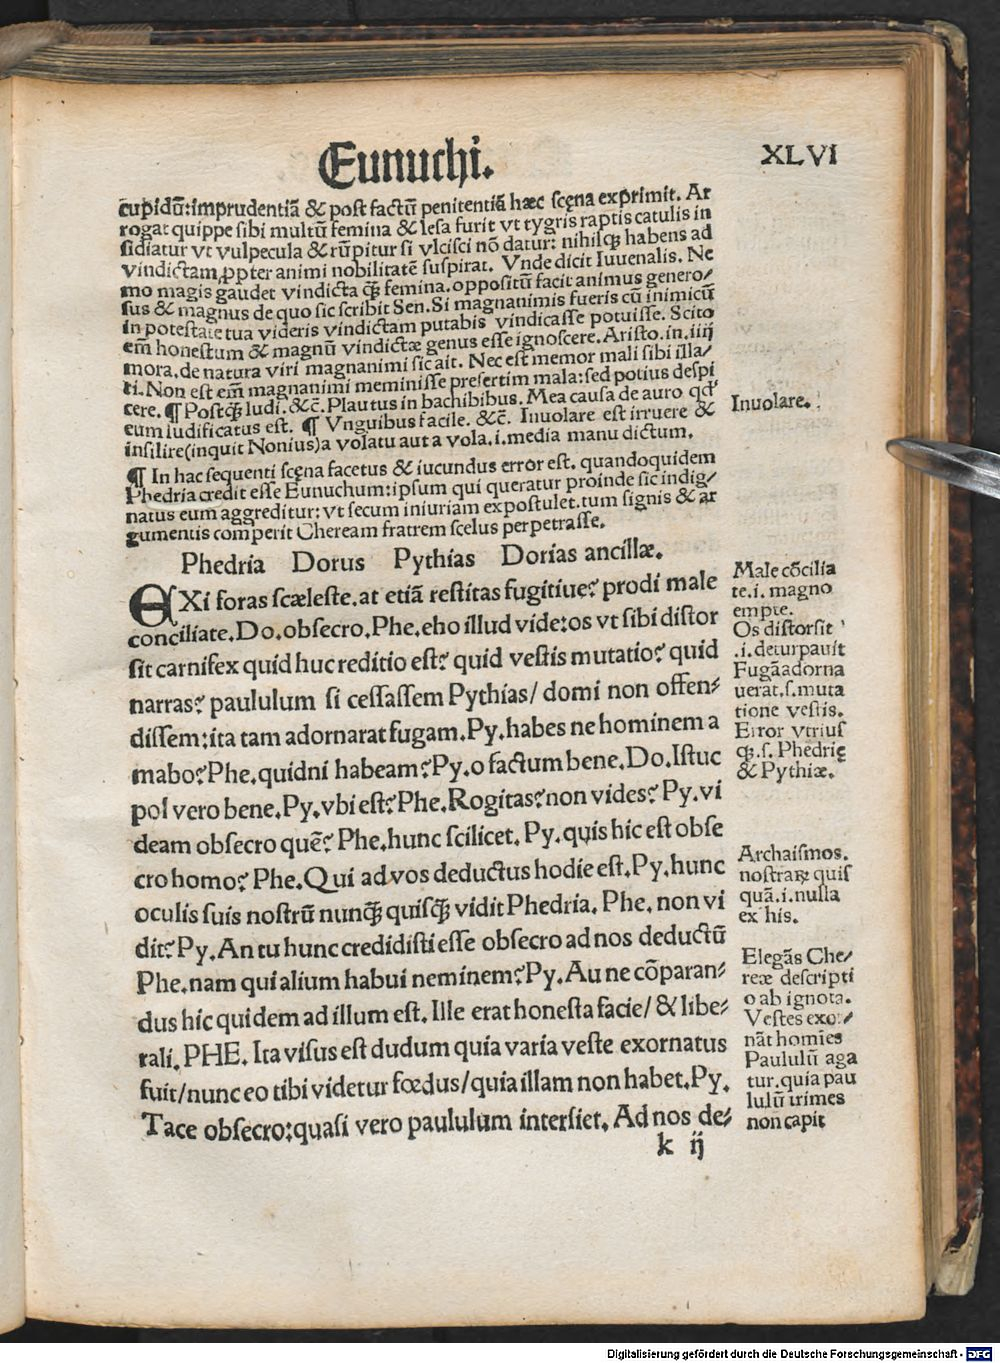 Eunuchi.
XLVI
cupidū:imprudentiā & post factū penitentiā hæc scęna exprimit. Ar
rogat quippe sibi multū femina & lesa furit vt tygris raptis catulis in
sidiatur vt vulpecula & rūpitur si vlcisci nō datur: nihilqꝫ habens ad
vindictam ꝓpter animi nobilitatē suspirat. Vnde dicit Iuuenalis. Ne
mo magis gaudet vindicta qꝫ̄ femina. oppositū facit animus genero/
sus & magnus de quo sic scribit Sen. Si magnanimis fueris cū inimicū
in potestate tua videris vindictam putabis vindicasse potuisse. Scito
em̄ honestum & magnū vindictæ genus esse ignoscere. Aristo. in. iiij
mora. de natura viri magnanimi sic ait. Nec est memor mali sibi illa/
ti. Non est em̄ magnanimi meminisse presertim mala: sed potius despi
cere. ¶ Postqꝫ̄ ludi. &c̄. Plautus in bachibibus. Mea causa de auro qd'
eum ludificatus est. ¶ Vnguibus facile. &c̄. Inuolare est irruere &
insilire(inquit Nonius)a volatu aut a vola. i. media manu dictum.
Inuolare.
¶ In hac sequenti scęna facetus & iucundus error est. quandoquidem
Phedria credit esse Eunuchum: ipsum qui queratur proinde sic indig/
natus eum aggreditur: vt secum iniuriam expostulet. tum signis & ar
gumentis comperit Cheream fratrem scelus perpetrasse.
Phedria Dorus Pythias Dorias ancillæ.
EXi foras scæleste. at etiā restitas fugitiue? prodi male
conciliate. Do. obsecro. Phe. eho illud vide: os vt sibi distor
sit carnifex quid huc reditio est? quid vestis mutatio? quid
narras? paululum si cessassem Pythias/ domi non offen/
dissem: ita tam adornarat fugam. Py. habes ne hominem a
mabo? Phe. quidni habeam? Py. o factum bene. Do. Istuc
pol vero bene. Py. vbi est? Phe. Rogitas? non vides? Py. vi
deam obsecro quē? Phe. hunc scilicet. Py. quis hic est obse
cro homo? Phe. Qui ad vos deductus hodie est. Py. hunc
oculis suis nostrū nunqꝫ̄ quisqꝫ̄ vidit Phedria. Phe. non vi
dit? Py. An tu hunc credidisti esse obsecro ad nos deductū
Phe. nam qui alium habui neminem? Py. Au ne cōparan/
dus hic quidem ad illum est. Ille erat honesta facie/ & libe/
rali. PHE. Ita visus est dudum quia varia veste exornatus
fuit/ nunc eo tibi videtur fœdus/ quia illam non habet. Py.
Tace obsecro: quasi vero paululum intersiet. Ad nos de/
k ij
Male cōcilia
te. i. magno
empte.
Os distorsit
.i. deturpauit
Fugā adorna
uerat. s. muta
tione vestis.
Error vtrius
qꝫ. s. Phedrię
& Pythiæ.
Archaismos.
nostraꝝ quis
quā. i. nulla
ex his.
Elegās Che/
reæ descripti
o ab ignota.
Vestes exor/
nāt homīes
Paululū aga
tur. quia pau
lulū trimes
non capit
Digitalisierung gefördert durch die Deutsche Forschungsgemeinschaft - DFG